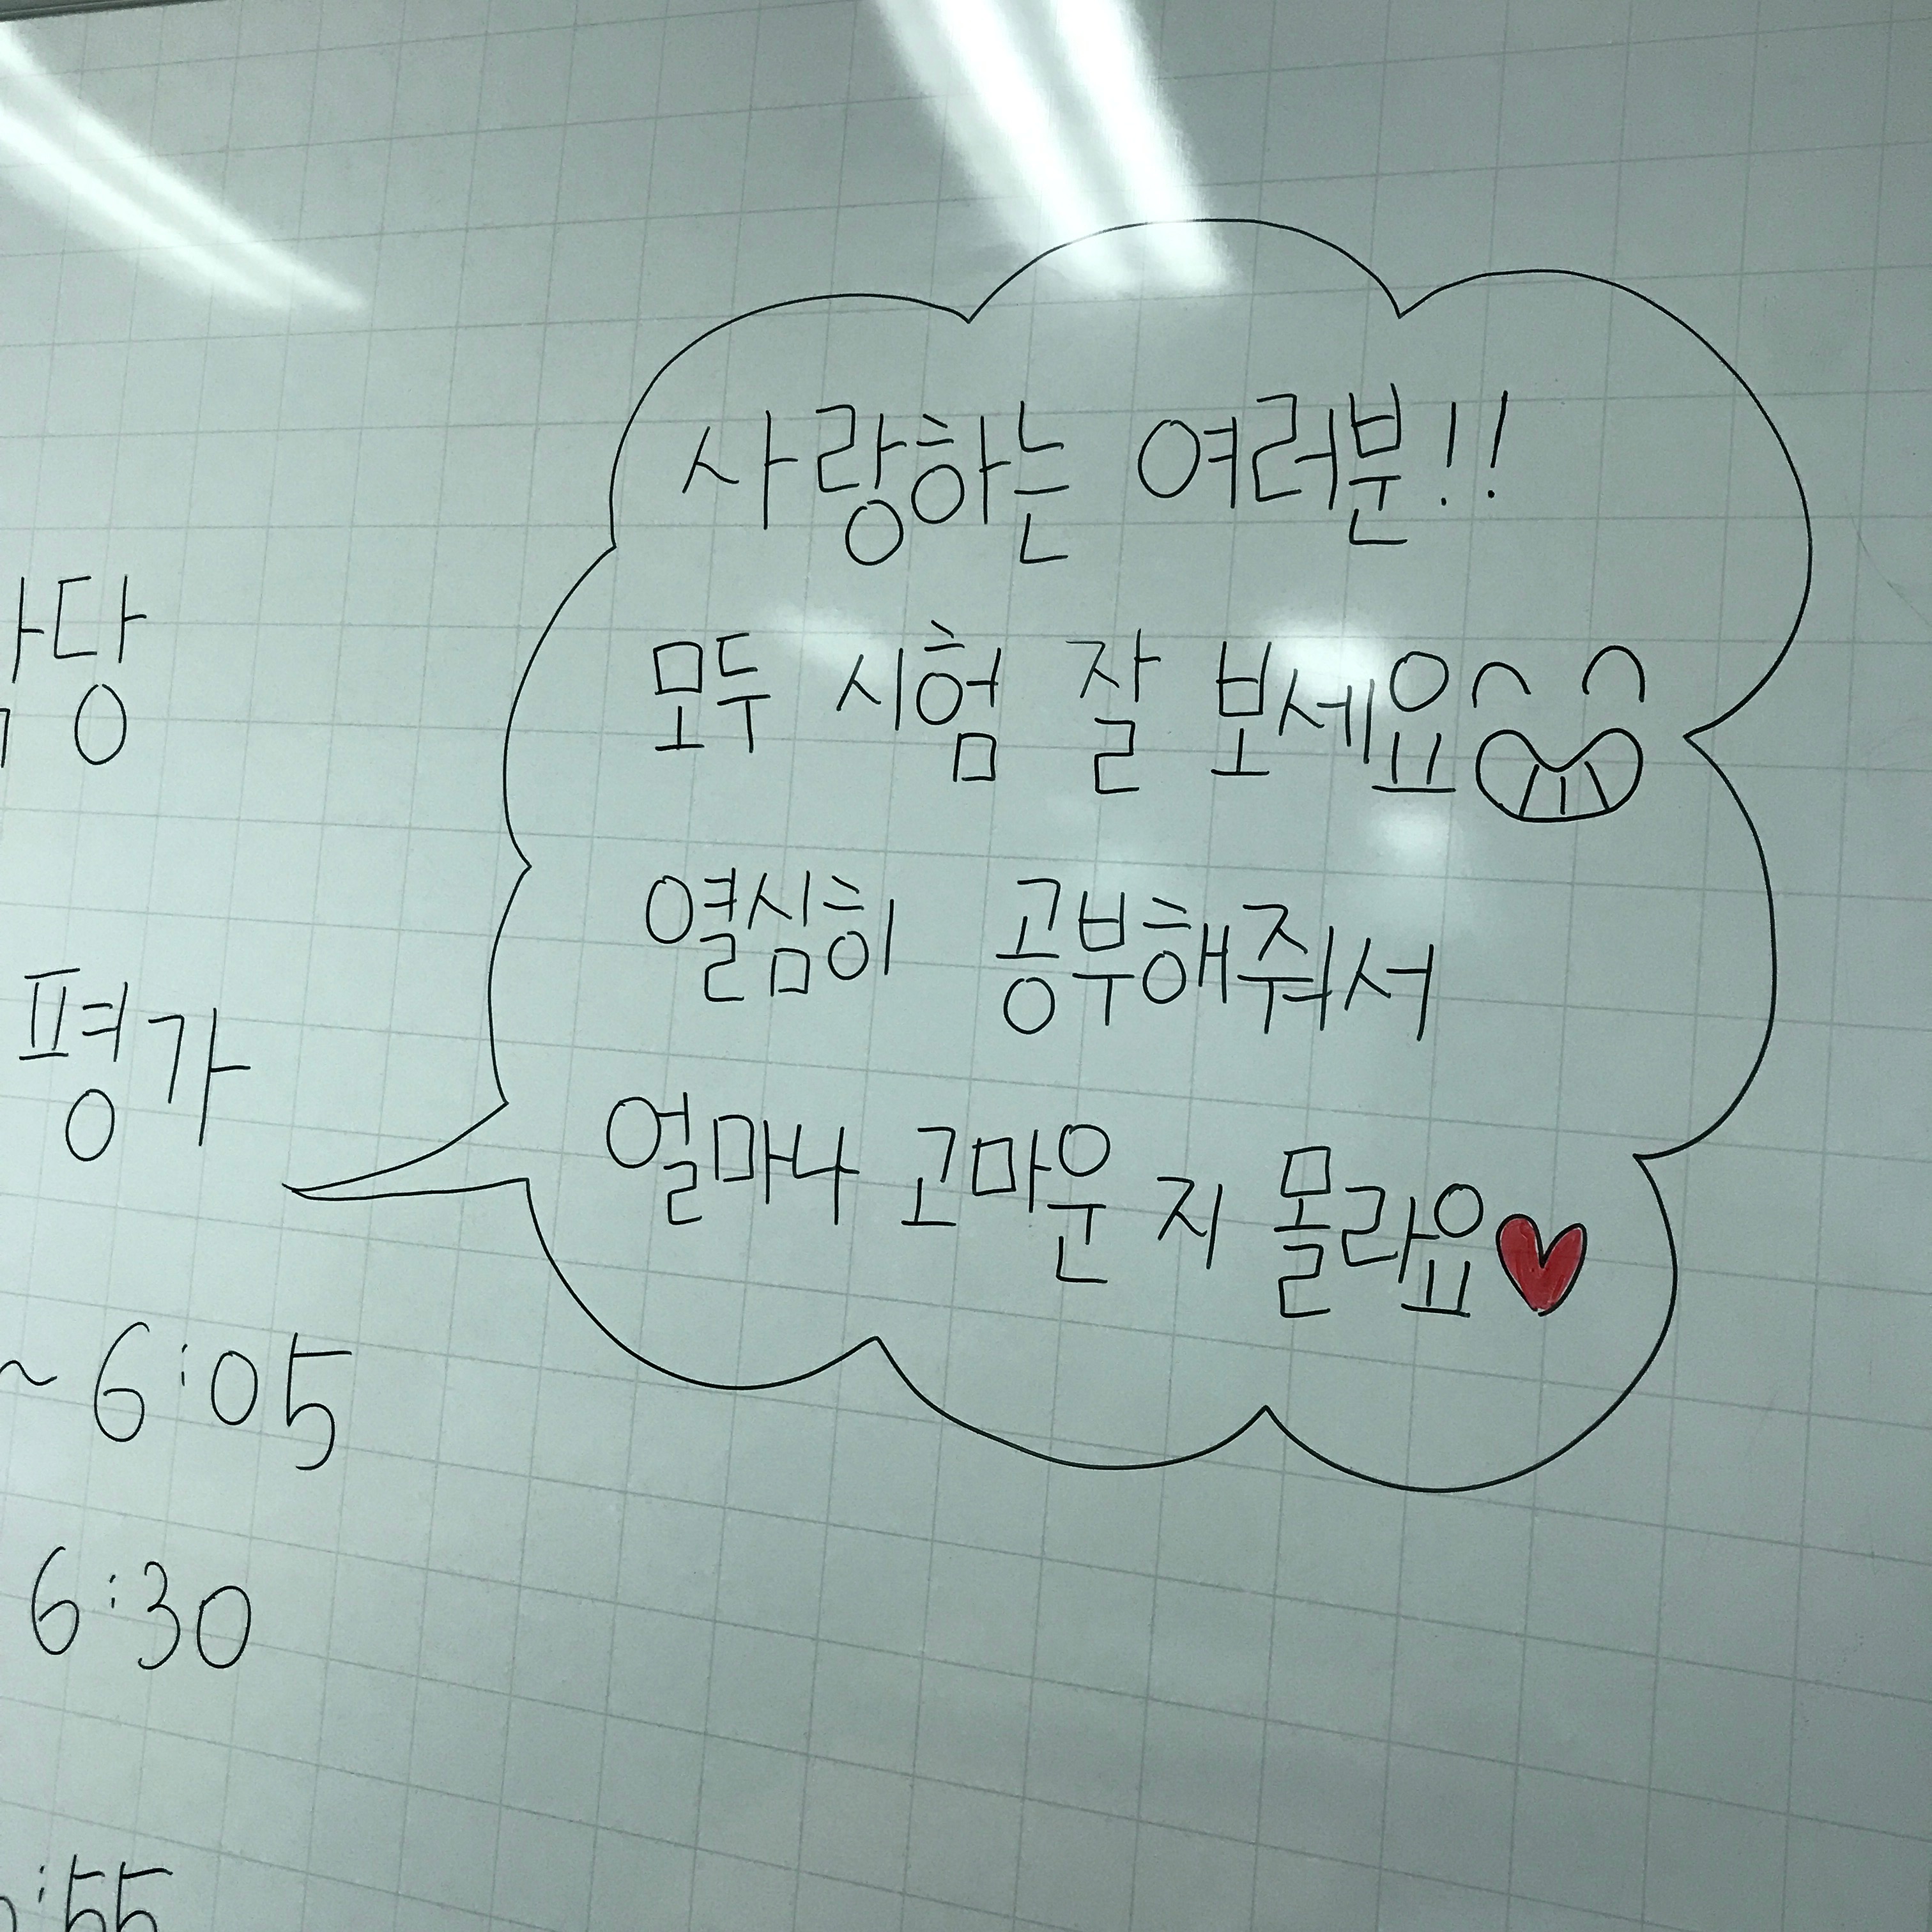 사랑하는 여러분!!
모두 시험 잘 보세요
열심히 공부해줘서
얼마나 고마운 지 몰라요♥
평가
~6:05
6:30
:55